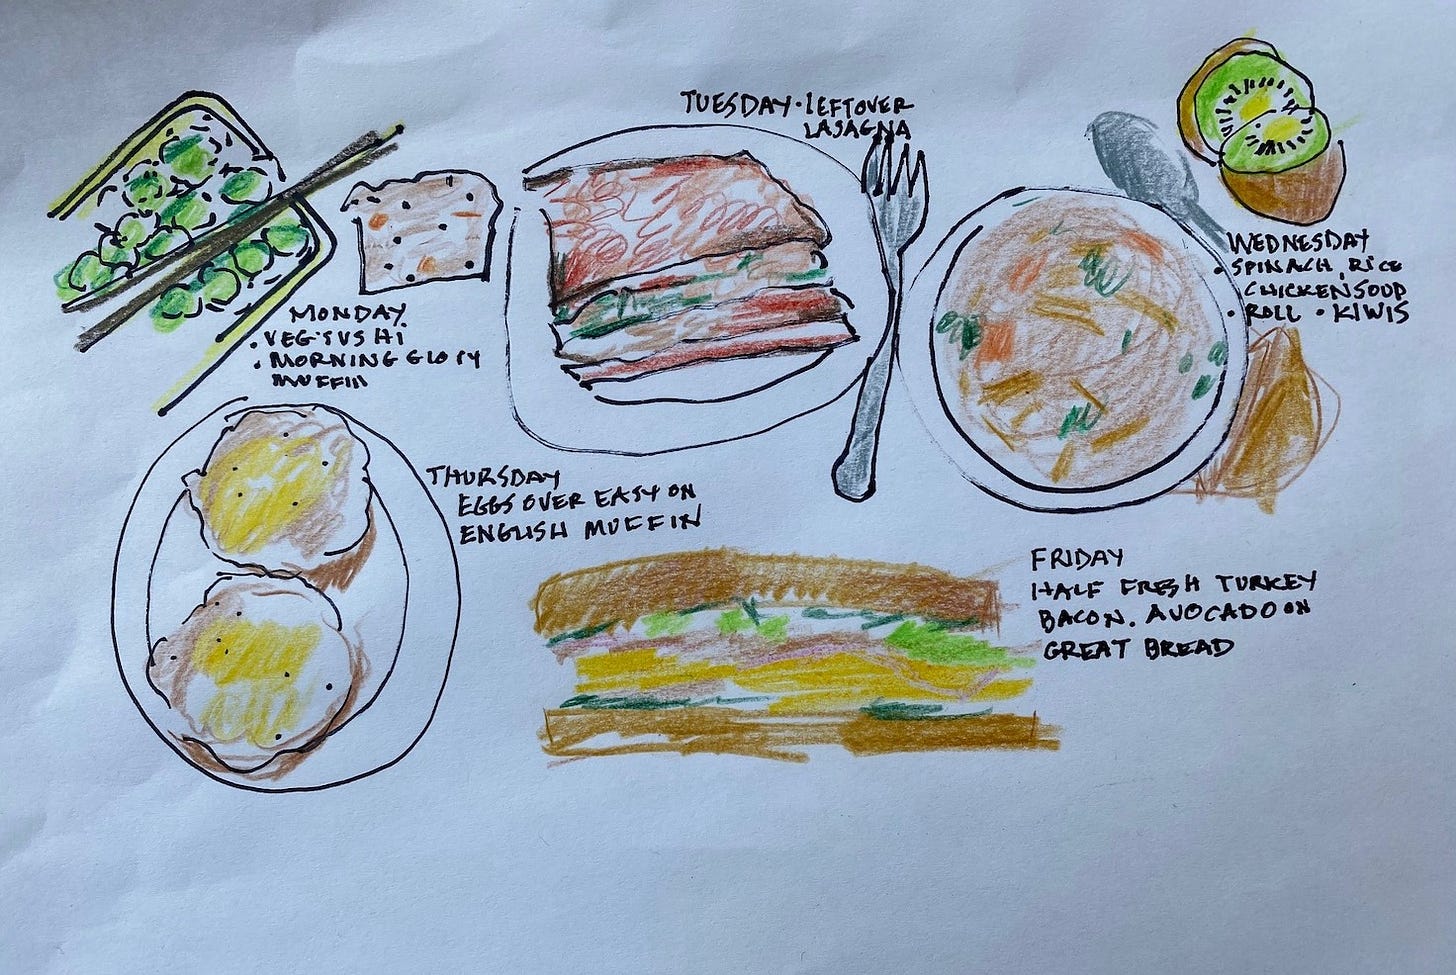 TUESDAY · LEFTOVER
LASAGNA
MONDAY
• VEG SUSHI
• MORNING GLORY
MUFFIN
WEDNESDAY
• SPINACH, RICE
CHICKEN SOUP
• ROLL • KIWIS
THURSDAY
EGGS OVER EASY ON
ENGLISH MUFFIN
FRIDAY
HALF FRESH TURKEY
BACON. AVOCADO ON
GREAT BREAD